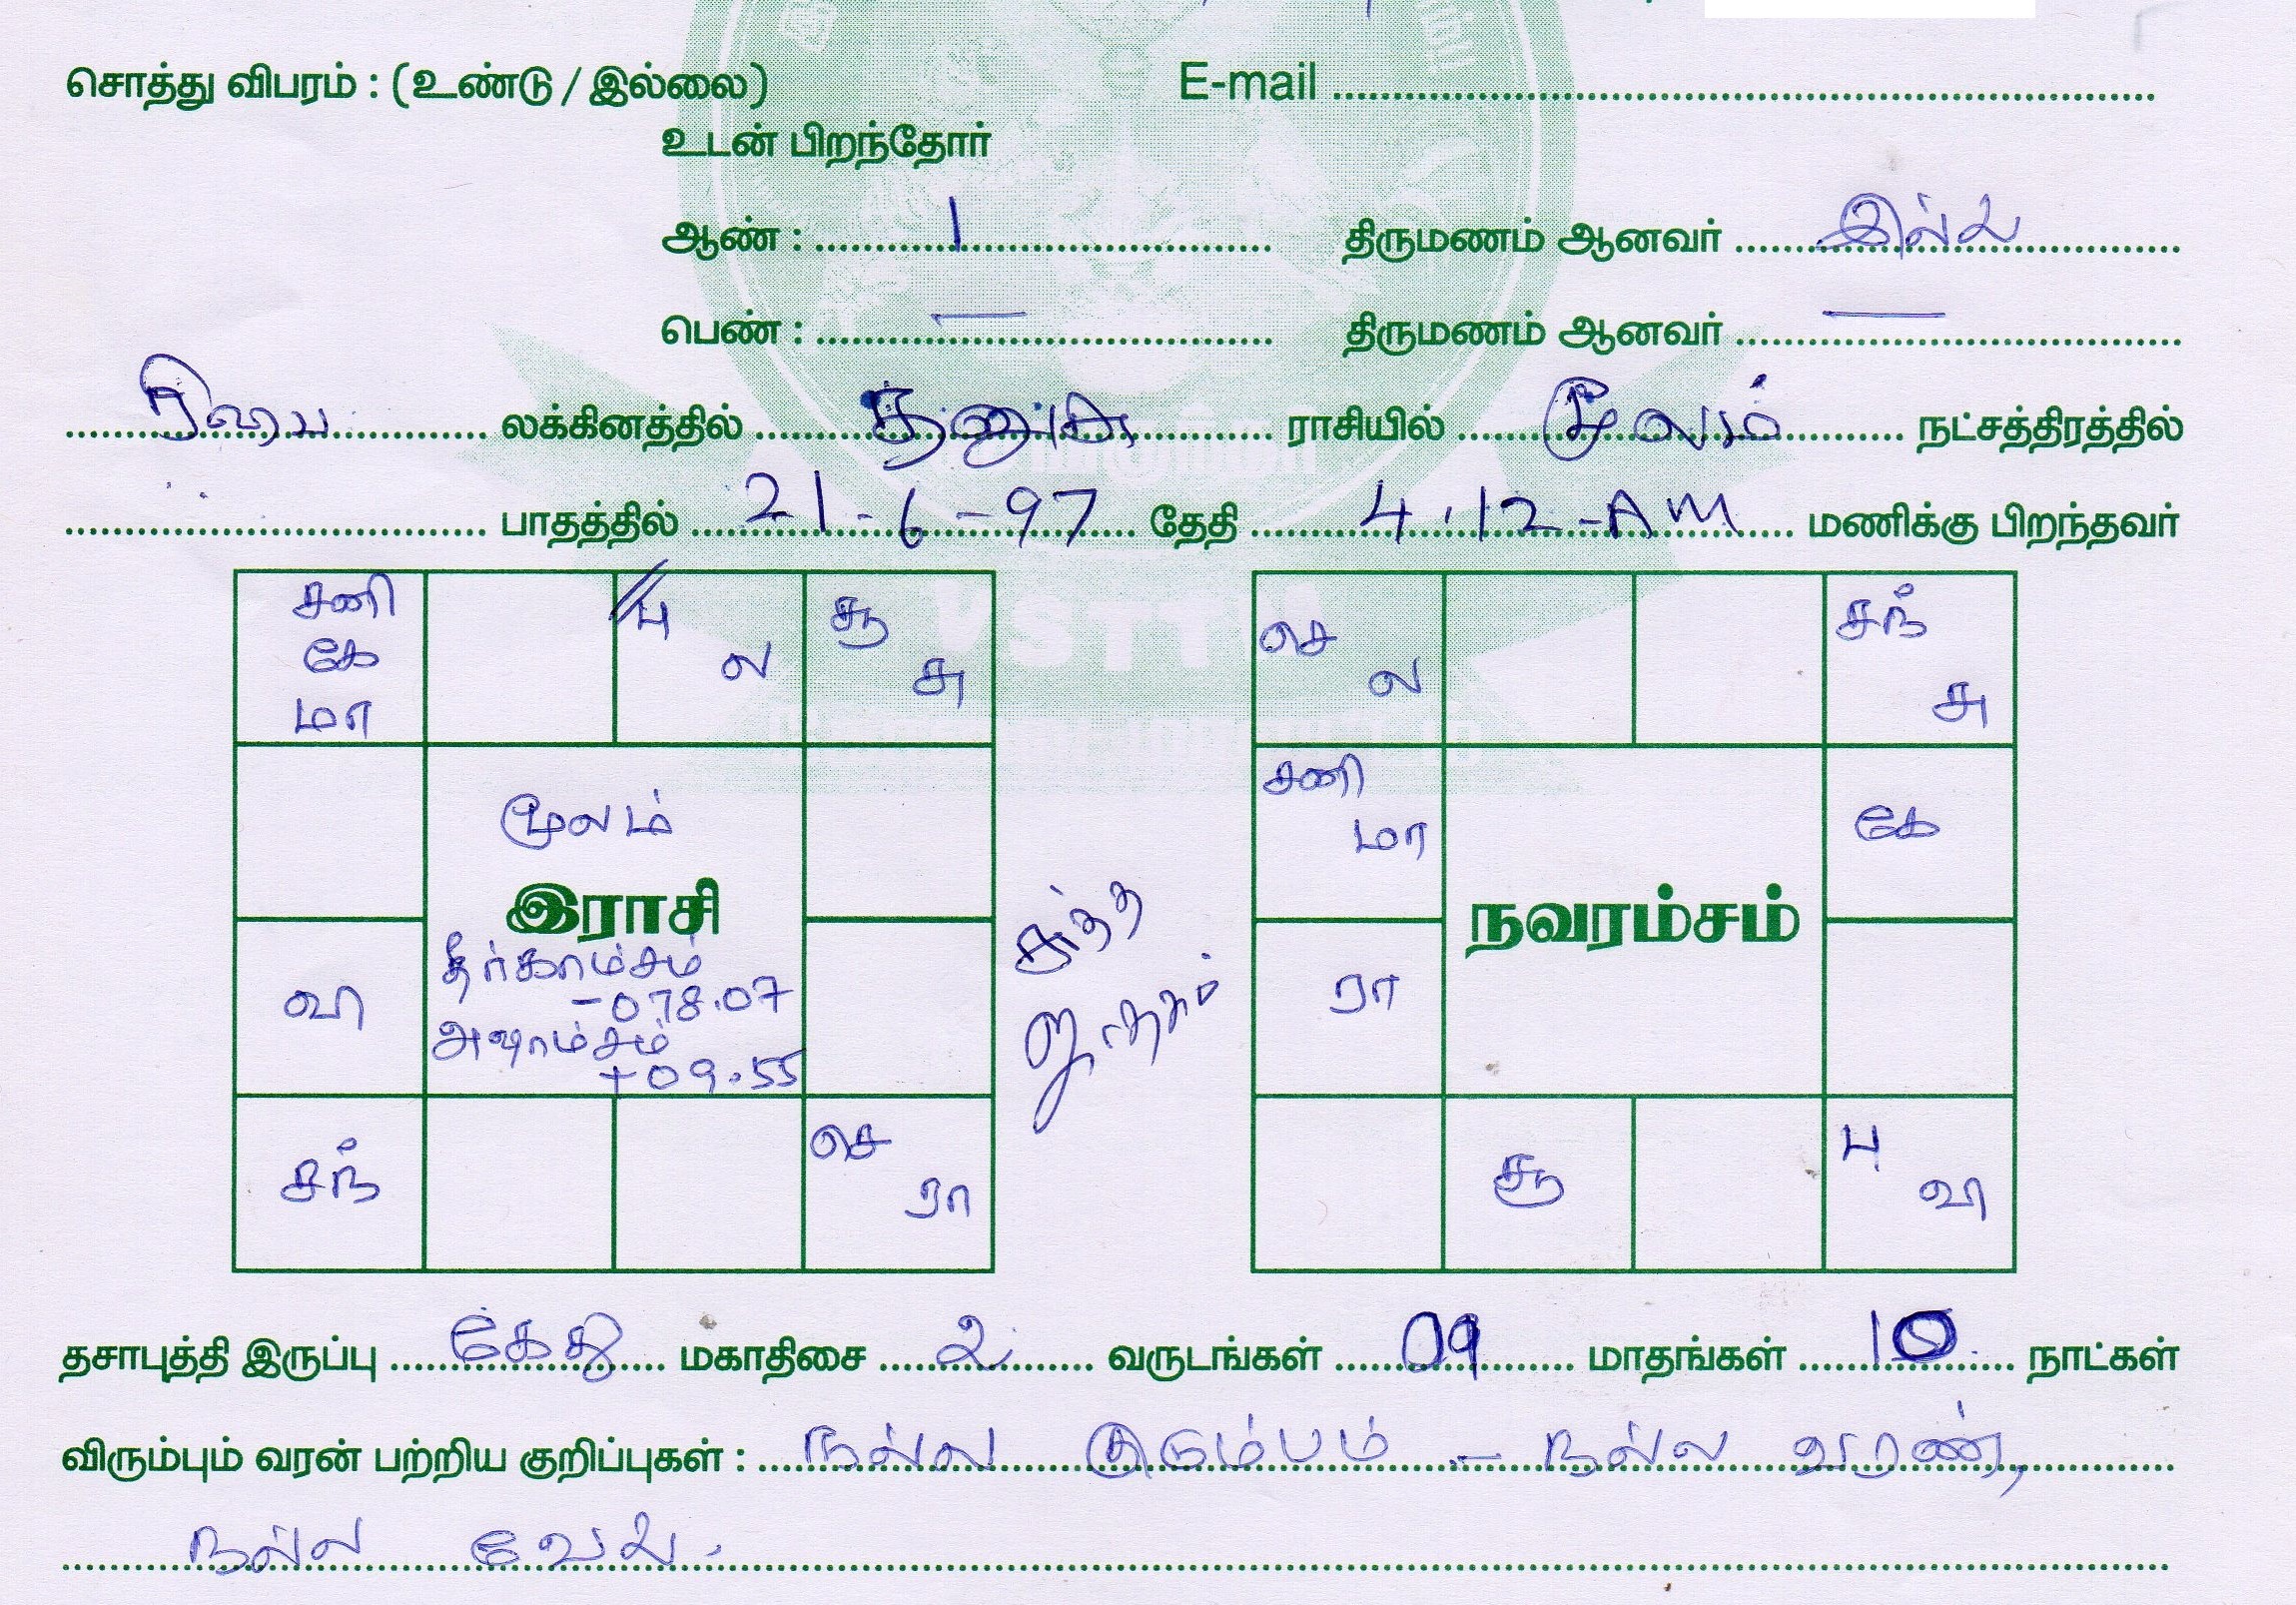 சொத்து விபரம் : (உண்டு / இல்லை) E-mail
உடன் பிறந்தோர்
ஆண் : 1 திருமணம் ஆனவர் இல்லை
பெண் : — திருமணம் ஆனவர் —
ரிஷப லக்கினத்தில் தனுசு ராசியில் மூலம் நட்சத்திரத்தில்
பாதத்தில் 21-6-97 தேதி 4.12-AM மணிக்கு பிறந்தவர்
சனி கே மா
பு ல
சூ சு
மூலம்
இராசி
தீர்காம்சம்
-078.07
அஷாம்சம்
+09.55
வி
சந்
செ ரா
சுத்த
ஜாதகம்
செ ல
சந் சு
சனி மா
கே
நவரம்சம்
ரா
சூ
பு வி
தசாபுத்தி இருப்பு கேது மகாதிசை 2 வருடங்கள் 09 மாதங்கள் 10 நாட்கள்
விரும்பும் வரன் பற்றிய குறிப்புகள் : நல்ல குடும்பம் - நல்ல வரண்,
நல்ல வேலை.